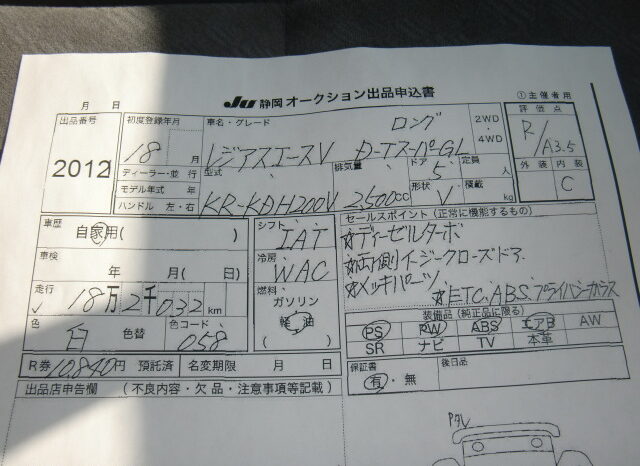 月 日 JU 静岡 オークション出品申込書 ①主催者用
出品番号 初度登録年月 車名・グレード ロング 2WD・4WD 評価点
2012 18 月 レジアスエースV D-Tスーパ-GL R/A3.5
ディーラー・並 行 型式 排気量 ドア 5 定員 人 外装 内装
モデル年式 年 形状 V 積載 kg C
ハンドル 左・右 KR-KDH200V 2,500cc
車歴 自家用( ) シフト IAT セールスポイント(正常に機能するもの)
車検 年 月( 日) 冷房 WAC ☆ディーゼルターボ
☆両側イージークローズドア
走行 ✓ 18万2千032km 燃料 ガソリン 軽油 ( ) ☆メッキパーツ
☆ETC.ABS.プライバシーガラス
色 白 色替 色コード 058 装備品(純正品に限る)
PS PW ABS エアB AW
SR ナビ TV 本革
R券 10,840円 預託済 名変期限 月 日 保証書 有・無 後日品
出品店申告欄 (不良内容・欠品・注意事項等記載)